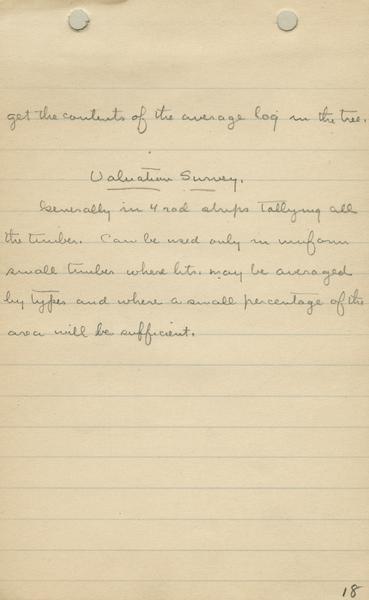 get the contents of the average log in the tree.
Valuation Survey.
Generally in 4 rod strips tallying all
the timber. Can be used only in uniform
small timber where hts. may be averaged
by types and where a small percentage of the
area will be sufficient.
18